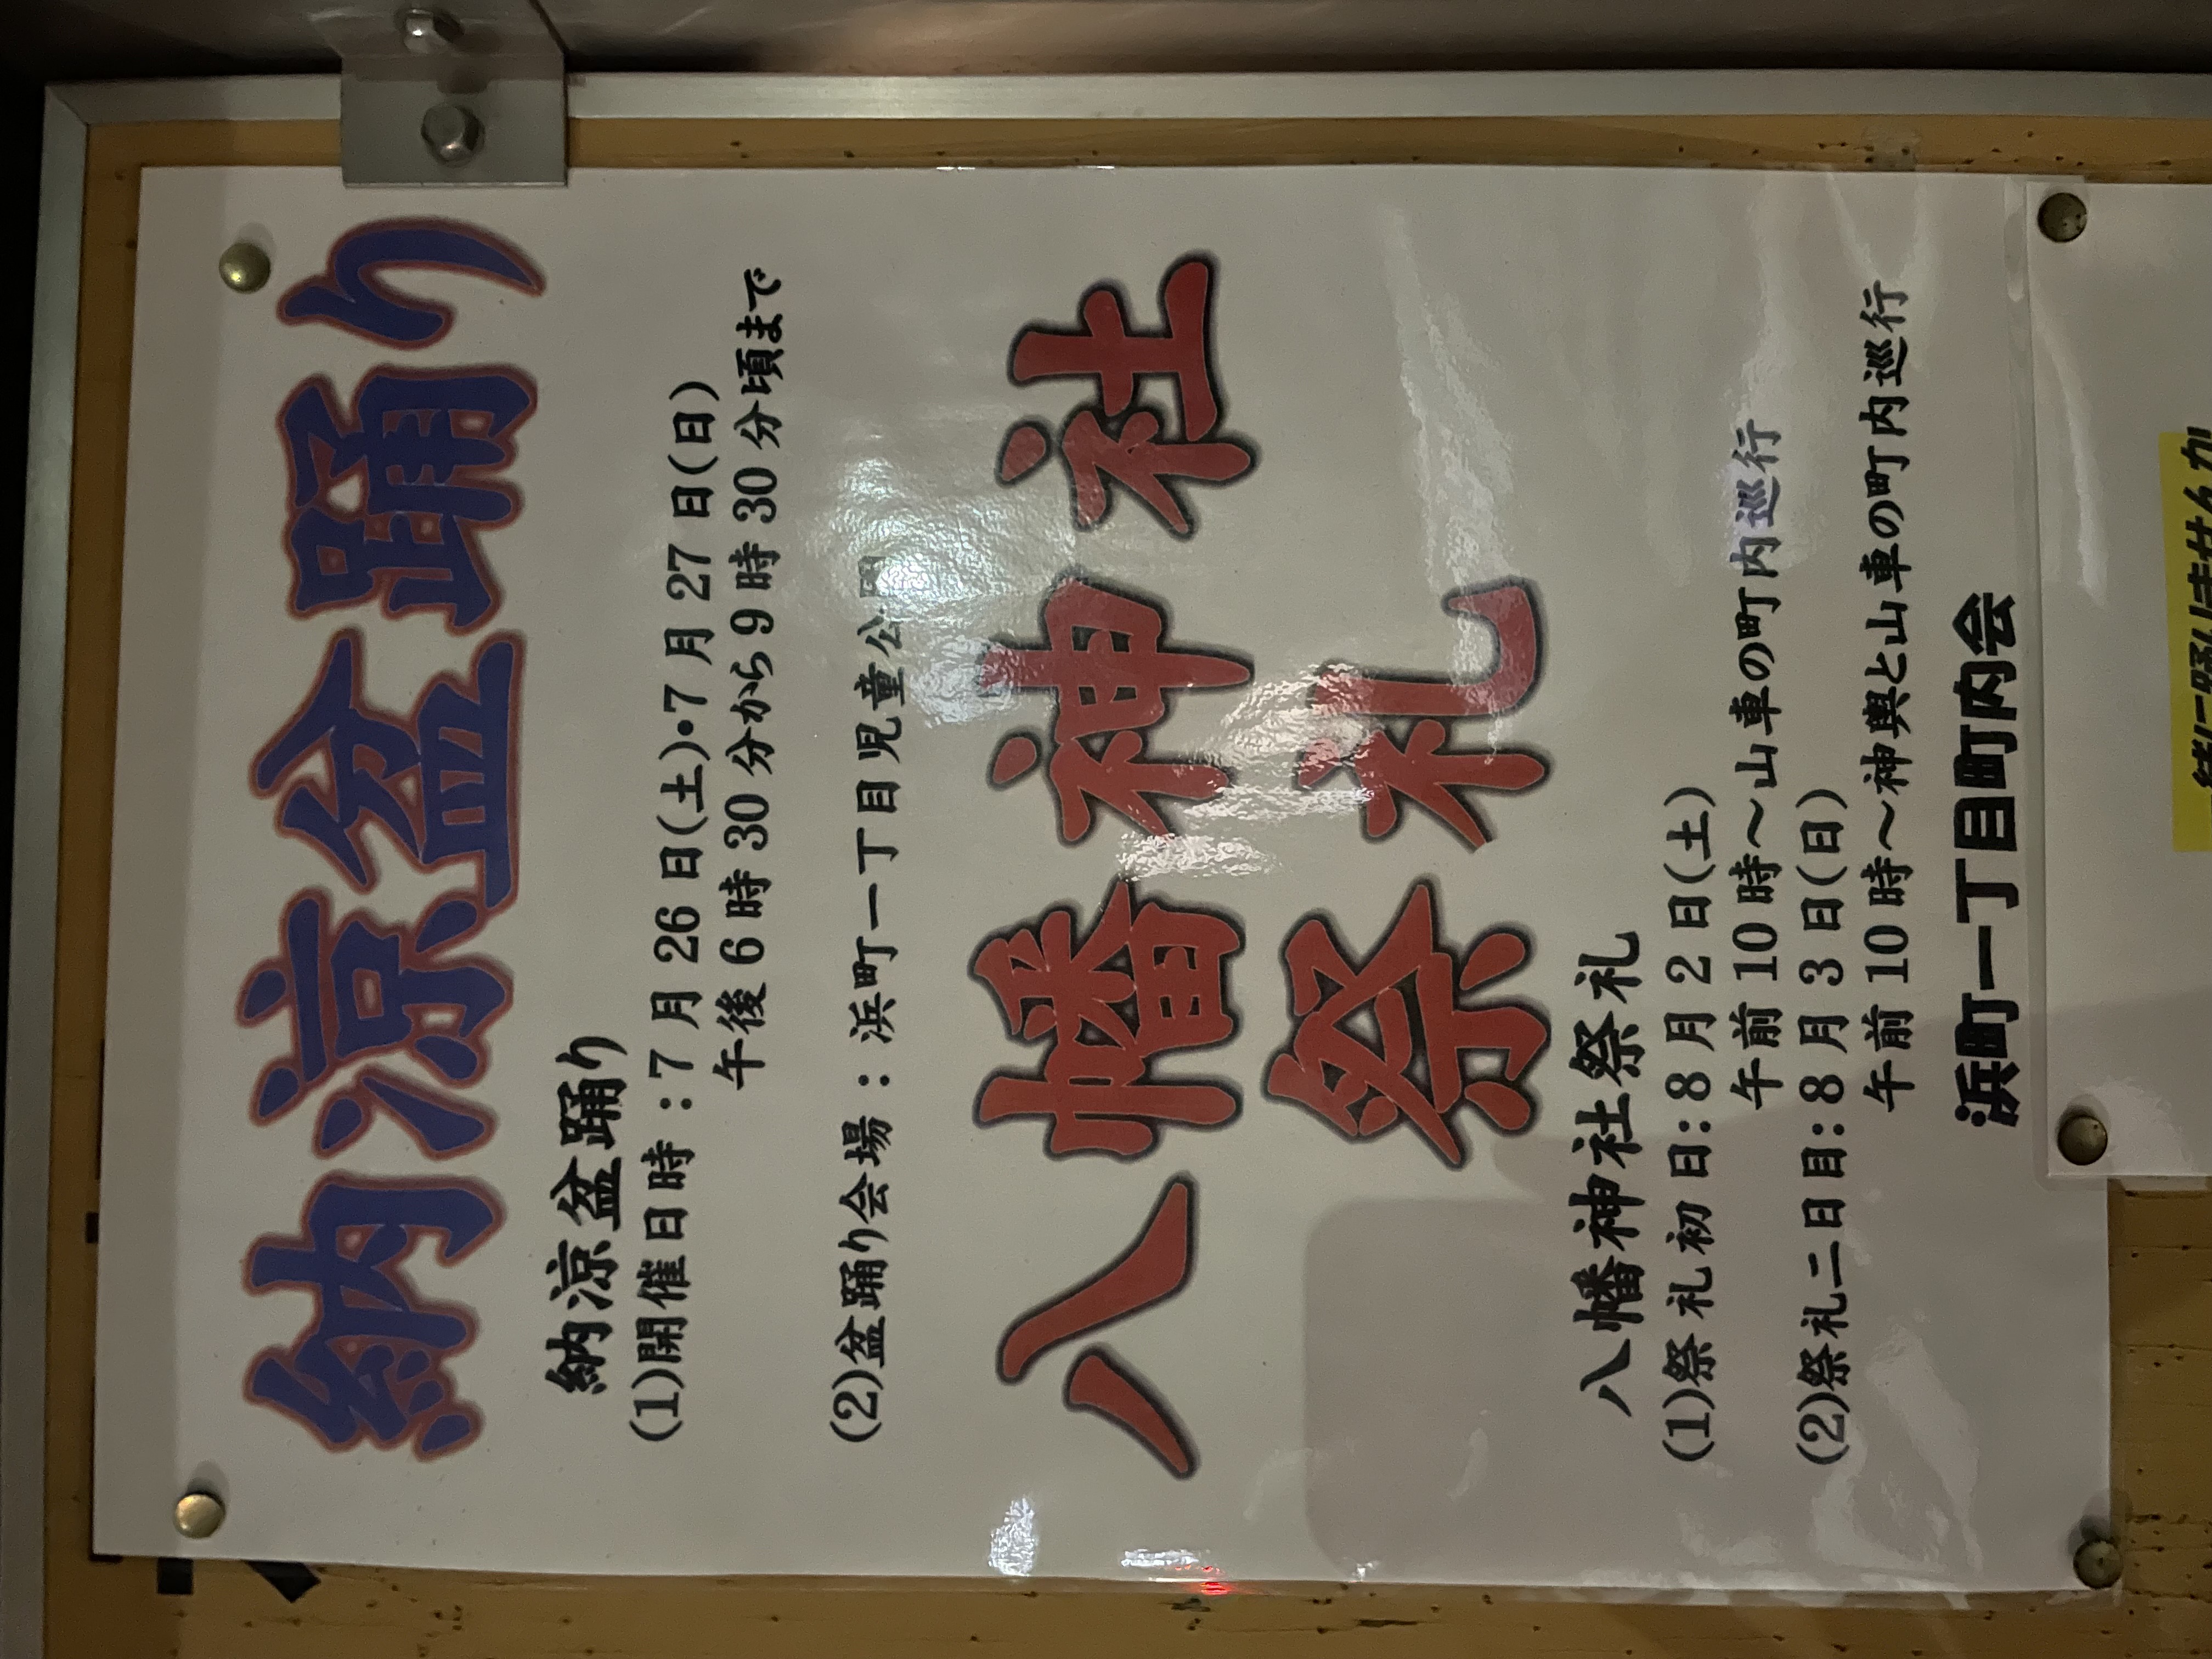 納涼盆踊り
納涼盆踊り
(1)開催日時:7月26日(土)・7月27日(日)
午後6時30分から9時30分頃まで
(2)盆踊り会場:浜町一丁目児童公園
八幡神社
祭礼
八幡神社祭礼
(1)祭礼初日:8月2日(土)
午前10時～山車の町内巡行
(2)祭礼二日目:8月3日(日)
午前10時～神輿と山車の町内巡行
浜町一丁目町内会